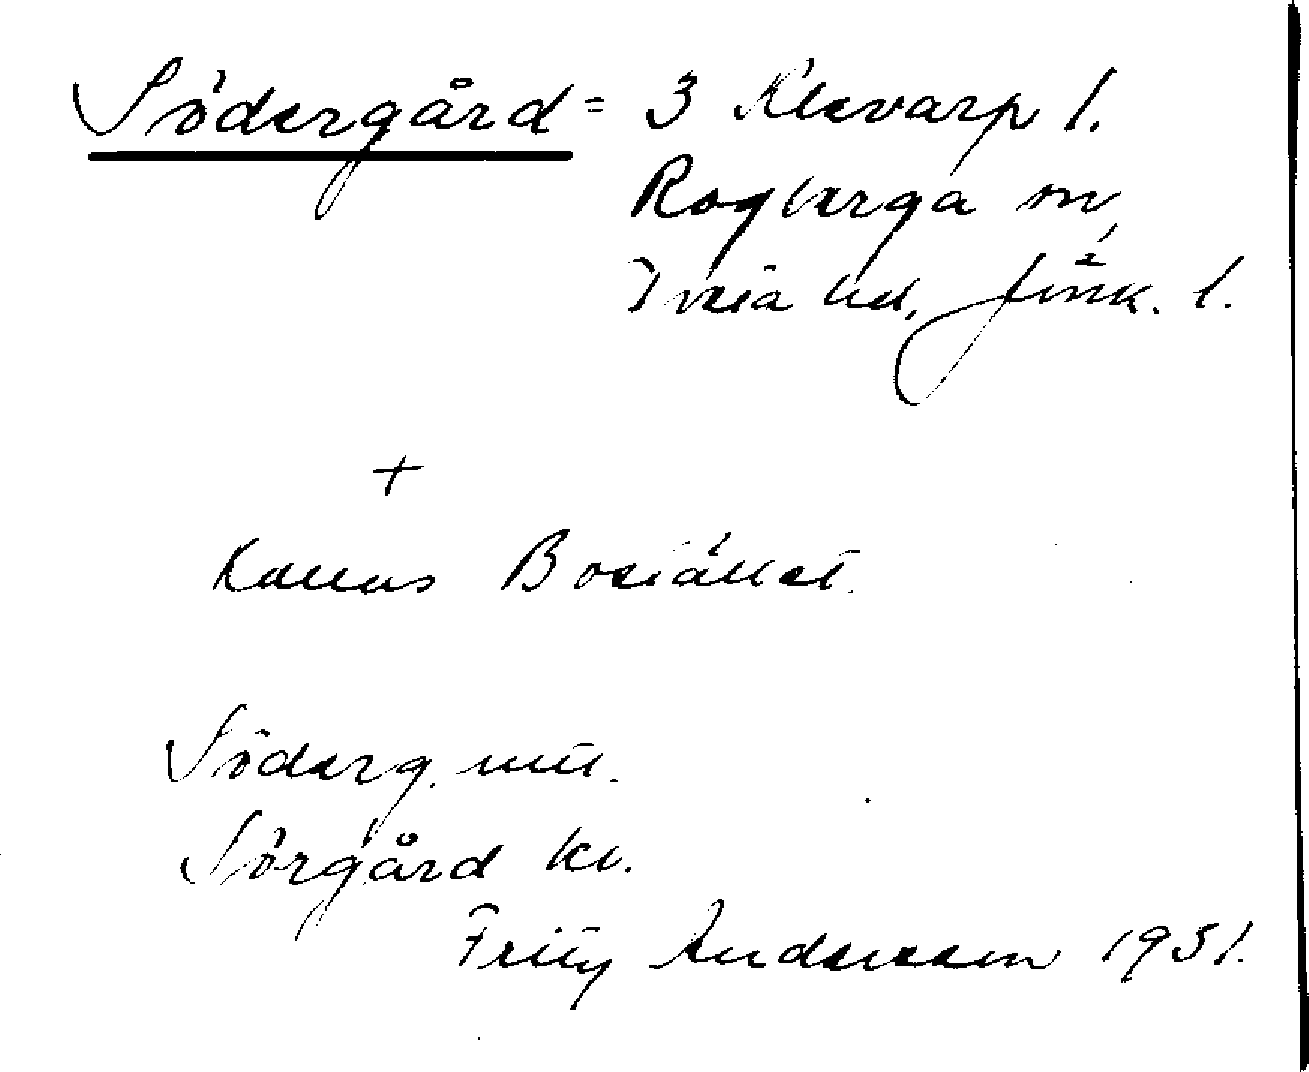 Södergård = 3 Klevarp 1.
Rogberga sn
Tveta hd, Jönk. l.
+
Kallas Bostället.
Söderg. mtl.
Sörgård kv.
Fritz Andersson 1951.